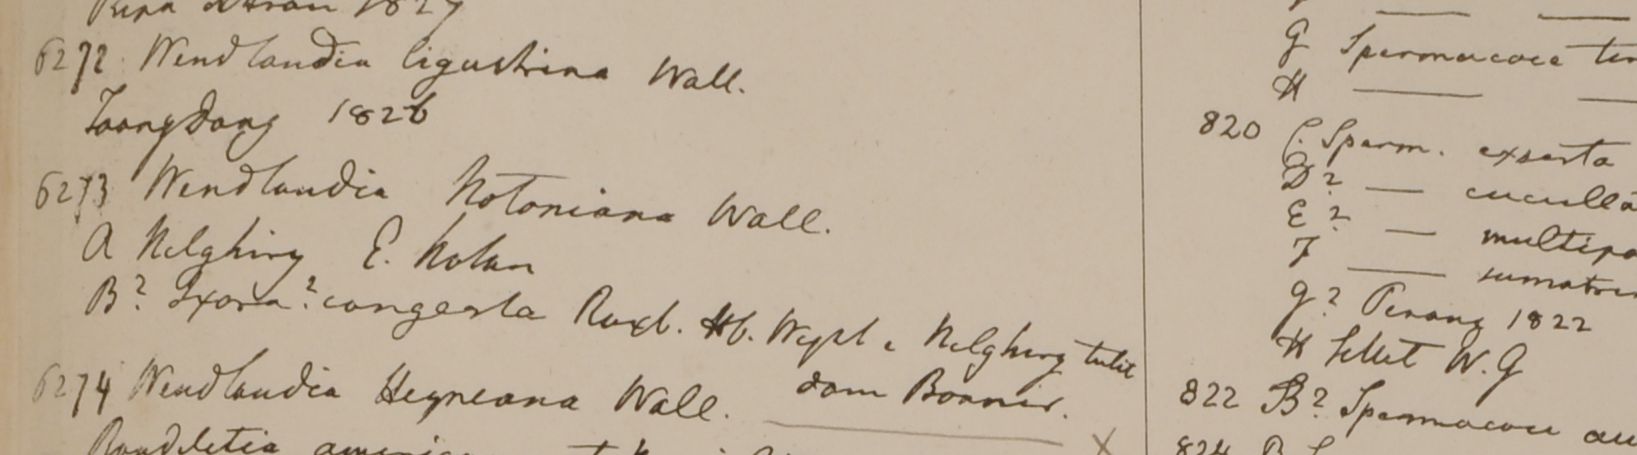 1827
6272 Wendlandia ligustrina Wall.
Toong Dong 1826
6273 Wendlandia Notoniana Wall.
A Nilghiry E. Noton
B? Ixora? congesta Roxb. Hb. Wight e Nilghiry tulit
dom Bonnier.
6274 Wendlandia Heyneana Wall.
Rondeletia
G Spermacoce
H
820 C. Sperm. exserta
D? — cuculla
E? — multipa
F — sumatre
G? Penang 1822
H Sillet W.G
822 B? Spermacoce au
824 B